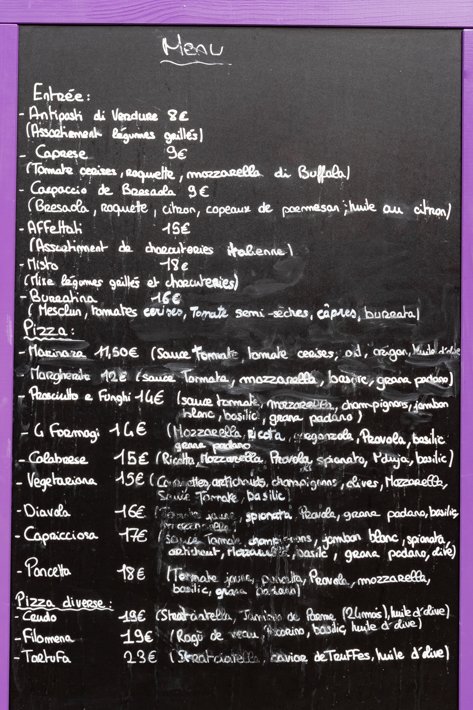 Menu
Entrée :
- Antipasti di Verdure 8€
(Assortiement légumes grillés)
- Caprese 9€
(Tomate cerises, roquette, mozzarella di Buffala)
- Carpaccio de Bresaola 9€
(Bresaola, roquete, citron, copeaux de parmesan ; huile au citron)
- Affettati 15€
(Assortiment de charcuteries italienne)
- Misto 18€
(Mixe légumes grillés et charcuteries)
- Burratina 16€
(Mesclun, tomates cerises, Tomate semi-sèches, câpres, burrata)
Pizza :
- Marinara 11,50€ (Sauce Tomate, tomate cerises, ail, origan, huile d'olive
- Margherite 12€ (sauce Tomate, mozzarella, basilic, grana padano)
- Prosciutto e Funghi 14€ (sauce tomate, mozzarella, champignons, jambon
blanc, basilic, grana padano)
- 4 Formagi 14€ (Mozzarella, Ricota, gorgonzola, Provola, basilic
grana padano
- Calabrese 15€ (Ricotta, Mozzarella, Provola, spianata, N'duja, basilic)
- Vegetariana 15€ (Courgettes, artichauts, champignons, olives, Mozzarella,
Sauce Tomate, basilic)
- Diavola 16€ (Tomate jaune, spianata, Provola, grana padano, basilic,
mozzarella)
- Capricciosa 17€ (Sauce Tomate, champignons, jambon blanc, spianata,
artichaut, Mozzarella, basilic, grana padano, olive)
- Pancetta 18€ (Tomate jaune, pancetta, Provola, mozzarella,
basilic, grana padano)
Pizza diverse :
- Crudo 19€ (Stratciatella, Jambon de Parme (24mois), huile d'olive)
- Filomena 19€ (Ragù de veau, Pecorino, basilic, huile d'olive)
- Tartufa 23€ (Stratciatella, caviar de Truffes, huile d'olive)